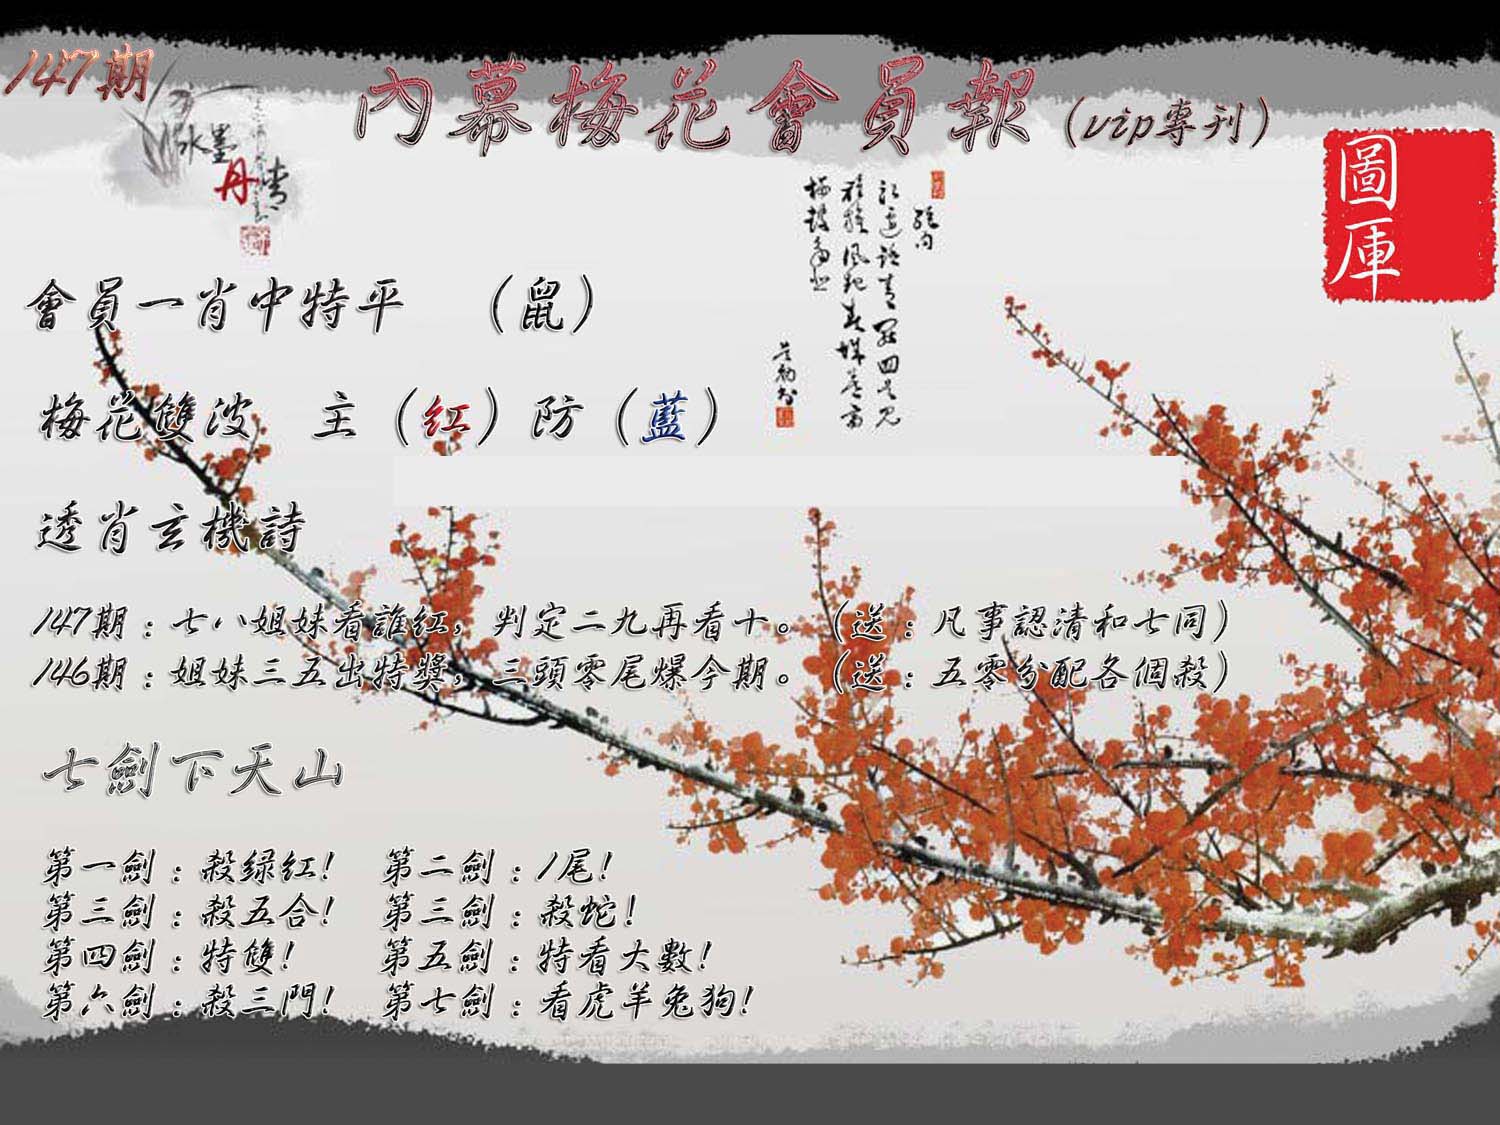 147期
內幕梅花會員報（vip專刊）
水墨
丹青
圖庫
會員一肖中特平　（鼠）
梅花雙波　主（紅）防（藍）
透肖玄機詩
147期：七八姐妹看誰紅，判定二九再看十。（送：凡事認清和七同）
146期：姐妹三五出特獎，三頭零尾爆今期。（送：五零分配各個殺）
七劍下天山
第一劍：殺綠紅！　第二劍：1尾！
第三劍：殺五合！　第三劍：殺蛇！
第四劍：特雙！　第五劍：特看大數！
第六劍：殺三門！　第七劍：看虎羊兔狗！